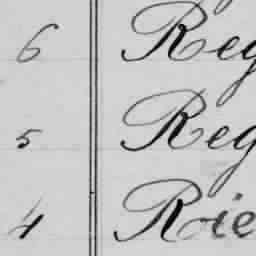 6 Reg
5 Reg
4 Rie